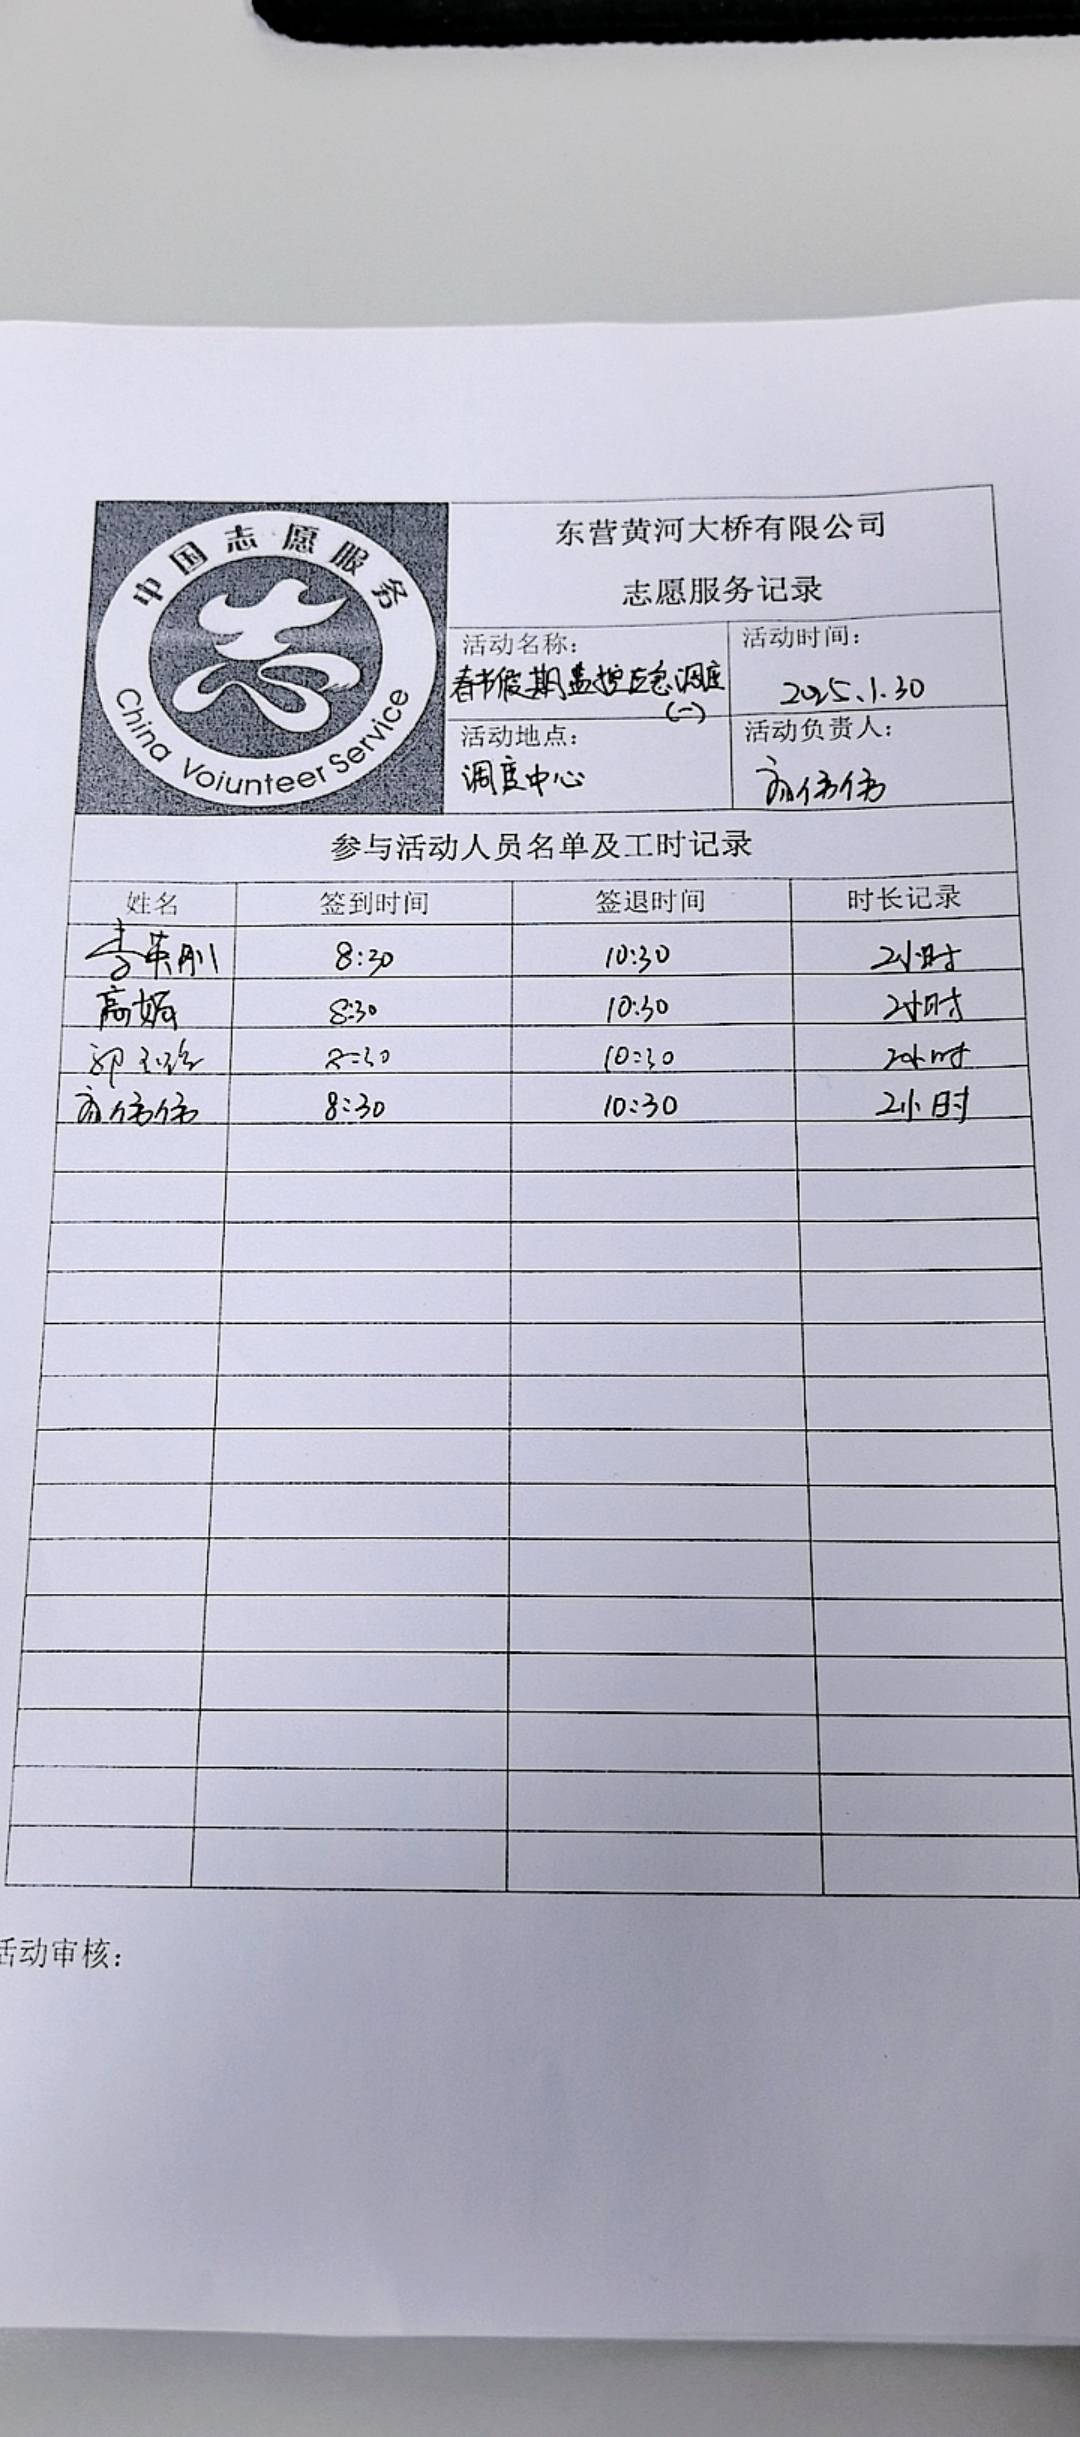 中国志愿服务
China Voiunteer Service
东营黄河大桥有限公司
志愿服务记录
活动名称：
春节假期监控应急调度
（一）
活动时间：
2025.1.30
活动地点：
调度中心
活动负责人：
伟伟
参与活动人员名单及工时记录
姓名 签到时间 签退时间 时长记录
李英刚 8:30 10:30 2小时
高娟 8:30 10:30 2小时
郭 8:30 10:30 2小时
伟伟 8:30 10:30 2小时
活动审核：